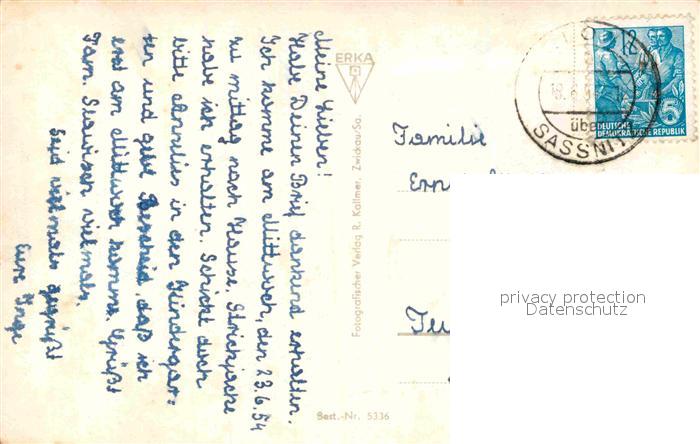 Meine Lieben!
Habe Deinen Brief dankend erhalten.
Ich komme am Mittwoch, den 23.6.54
zu mittag nach Hause. Strickjacke
habe ich erhalten. Schicke doch
bitte in den Kindergar=
ten und gebe Bescheid, daß ich
erst am Mittwoch komme. Grüßt
Fam. vielmals.
Seid vielmals gegrüßt
Eure Inge
ERKA
Fotografischer Verlag R. Kallmer, Zwickau/Sa.
Best.-Nr. 5336
Familie
12
5
DEUTSCHE
DEMOKRATISCHE REPUBLIK
über
SASSNIT
privacy protection
Datenschutz